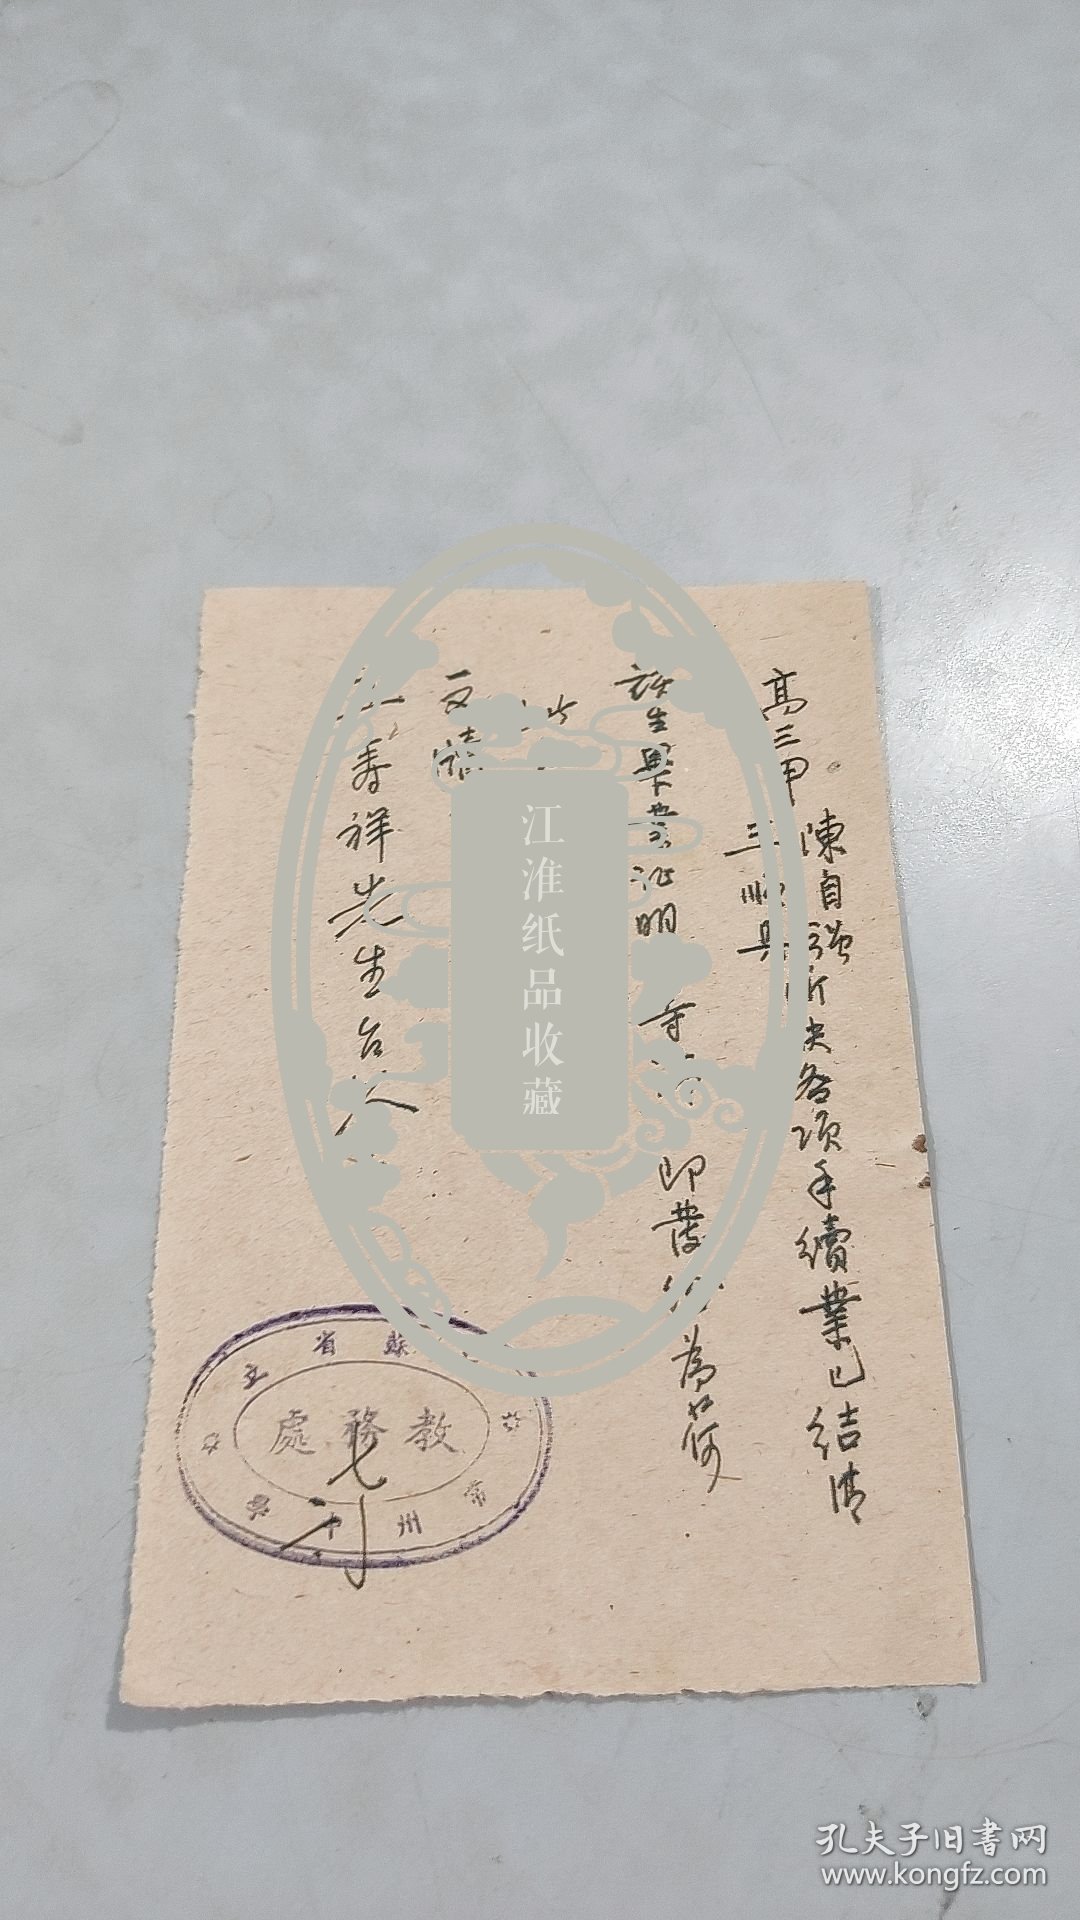 高三甲 陳自強所欠各項手續業已結清
三順興
該生畢業證明 即發給為荷
此
文牘
壽祥先生台
江淮纸品收藏
省蘇
教務處
常州中
七
孔夫子旧书网
www.kongfz.com